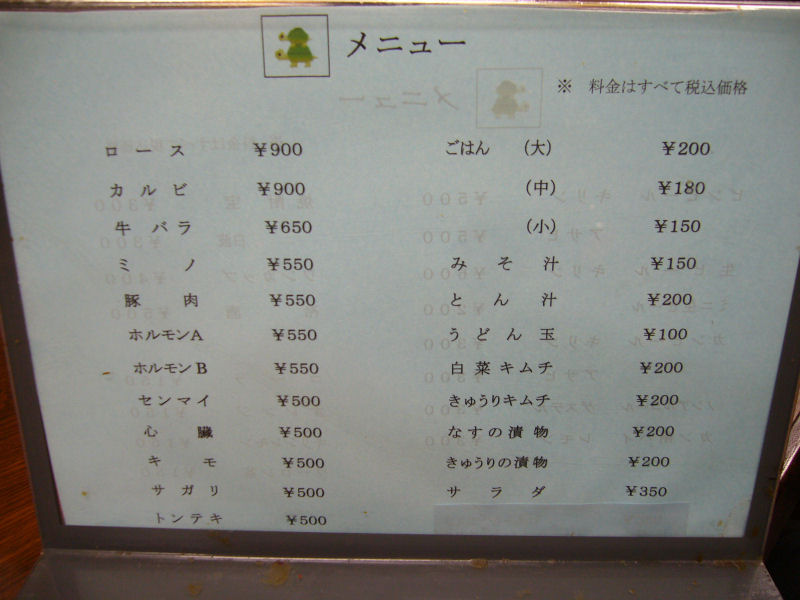 メニュー
※ 料金はすべて税込価格
ロース ￥900
カルビ ￥900
牛バラ ￥650
ミノ ￥550
豚肉 ￥550
ホルモンA ￥550
ホルモンB ￥550
センマイ ￥500
心臓 ￥500
キモ ￥500
サガリ ￥500
トンテキ ￥500
ごはん (大) ￥200
(中) ￥180
(小) ￥150
みそ汁 ￥150
とん汁 ￥200
うどん玉 ￥100
白菜キムチ ￥200
きゅうりキムチ ￥200
なすの漬物 ￥200
きゅうりの漬物 ￥200
サラダ ￥350